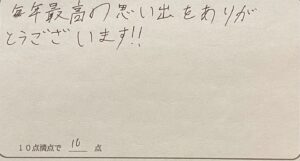 毎年最高の思い出をありが
とうございます!!
10点満点で 10 点